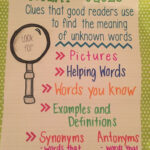 Clues that good readers use
to find the meaning
of unknown words
LOOK FOR
Pictures
Helping Words
Words you know
Examples and
Definitions
Synonyms Antonyms
words that words